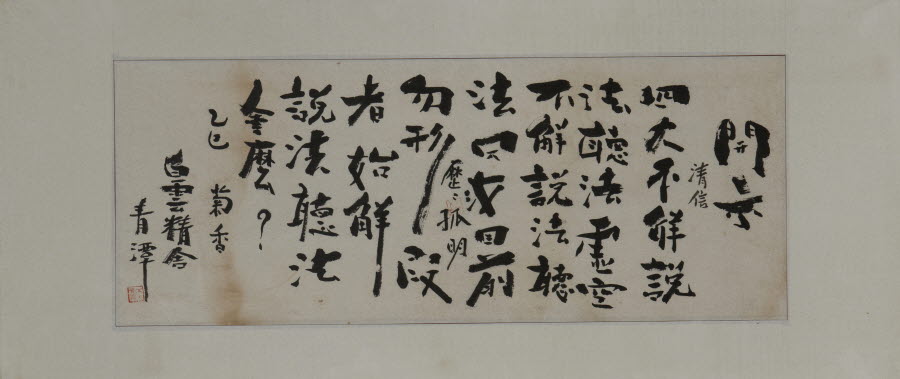 開示
清信
四大不解說
法聽法虛空
不解說法聽
法只汝目前
歷〻孤明
勿形段
者始解
說法聽法
會麼？
乙巳 菊香
白雲精舍
青潭